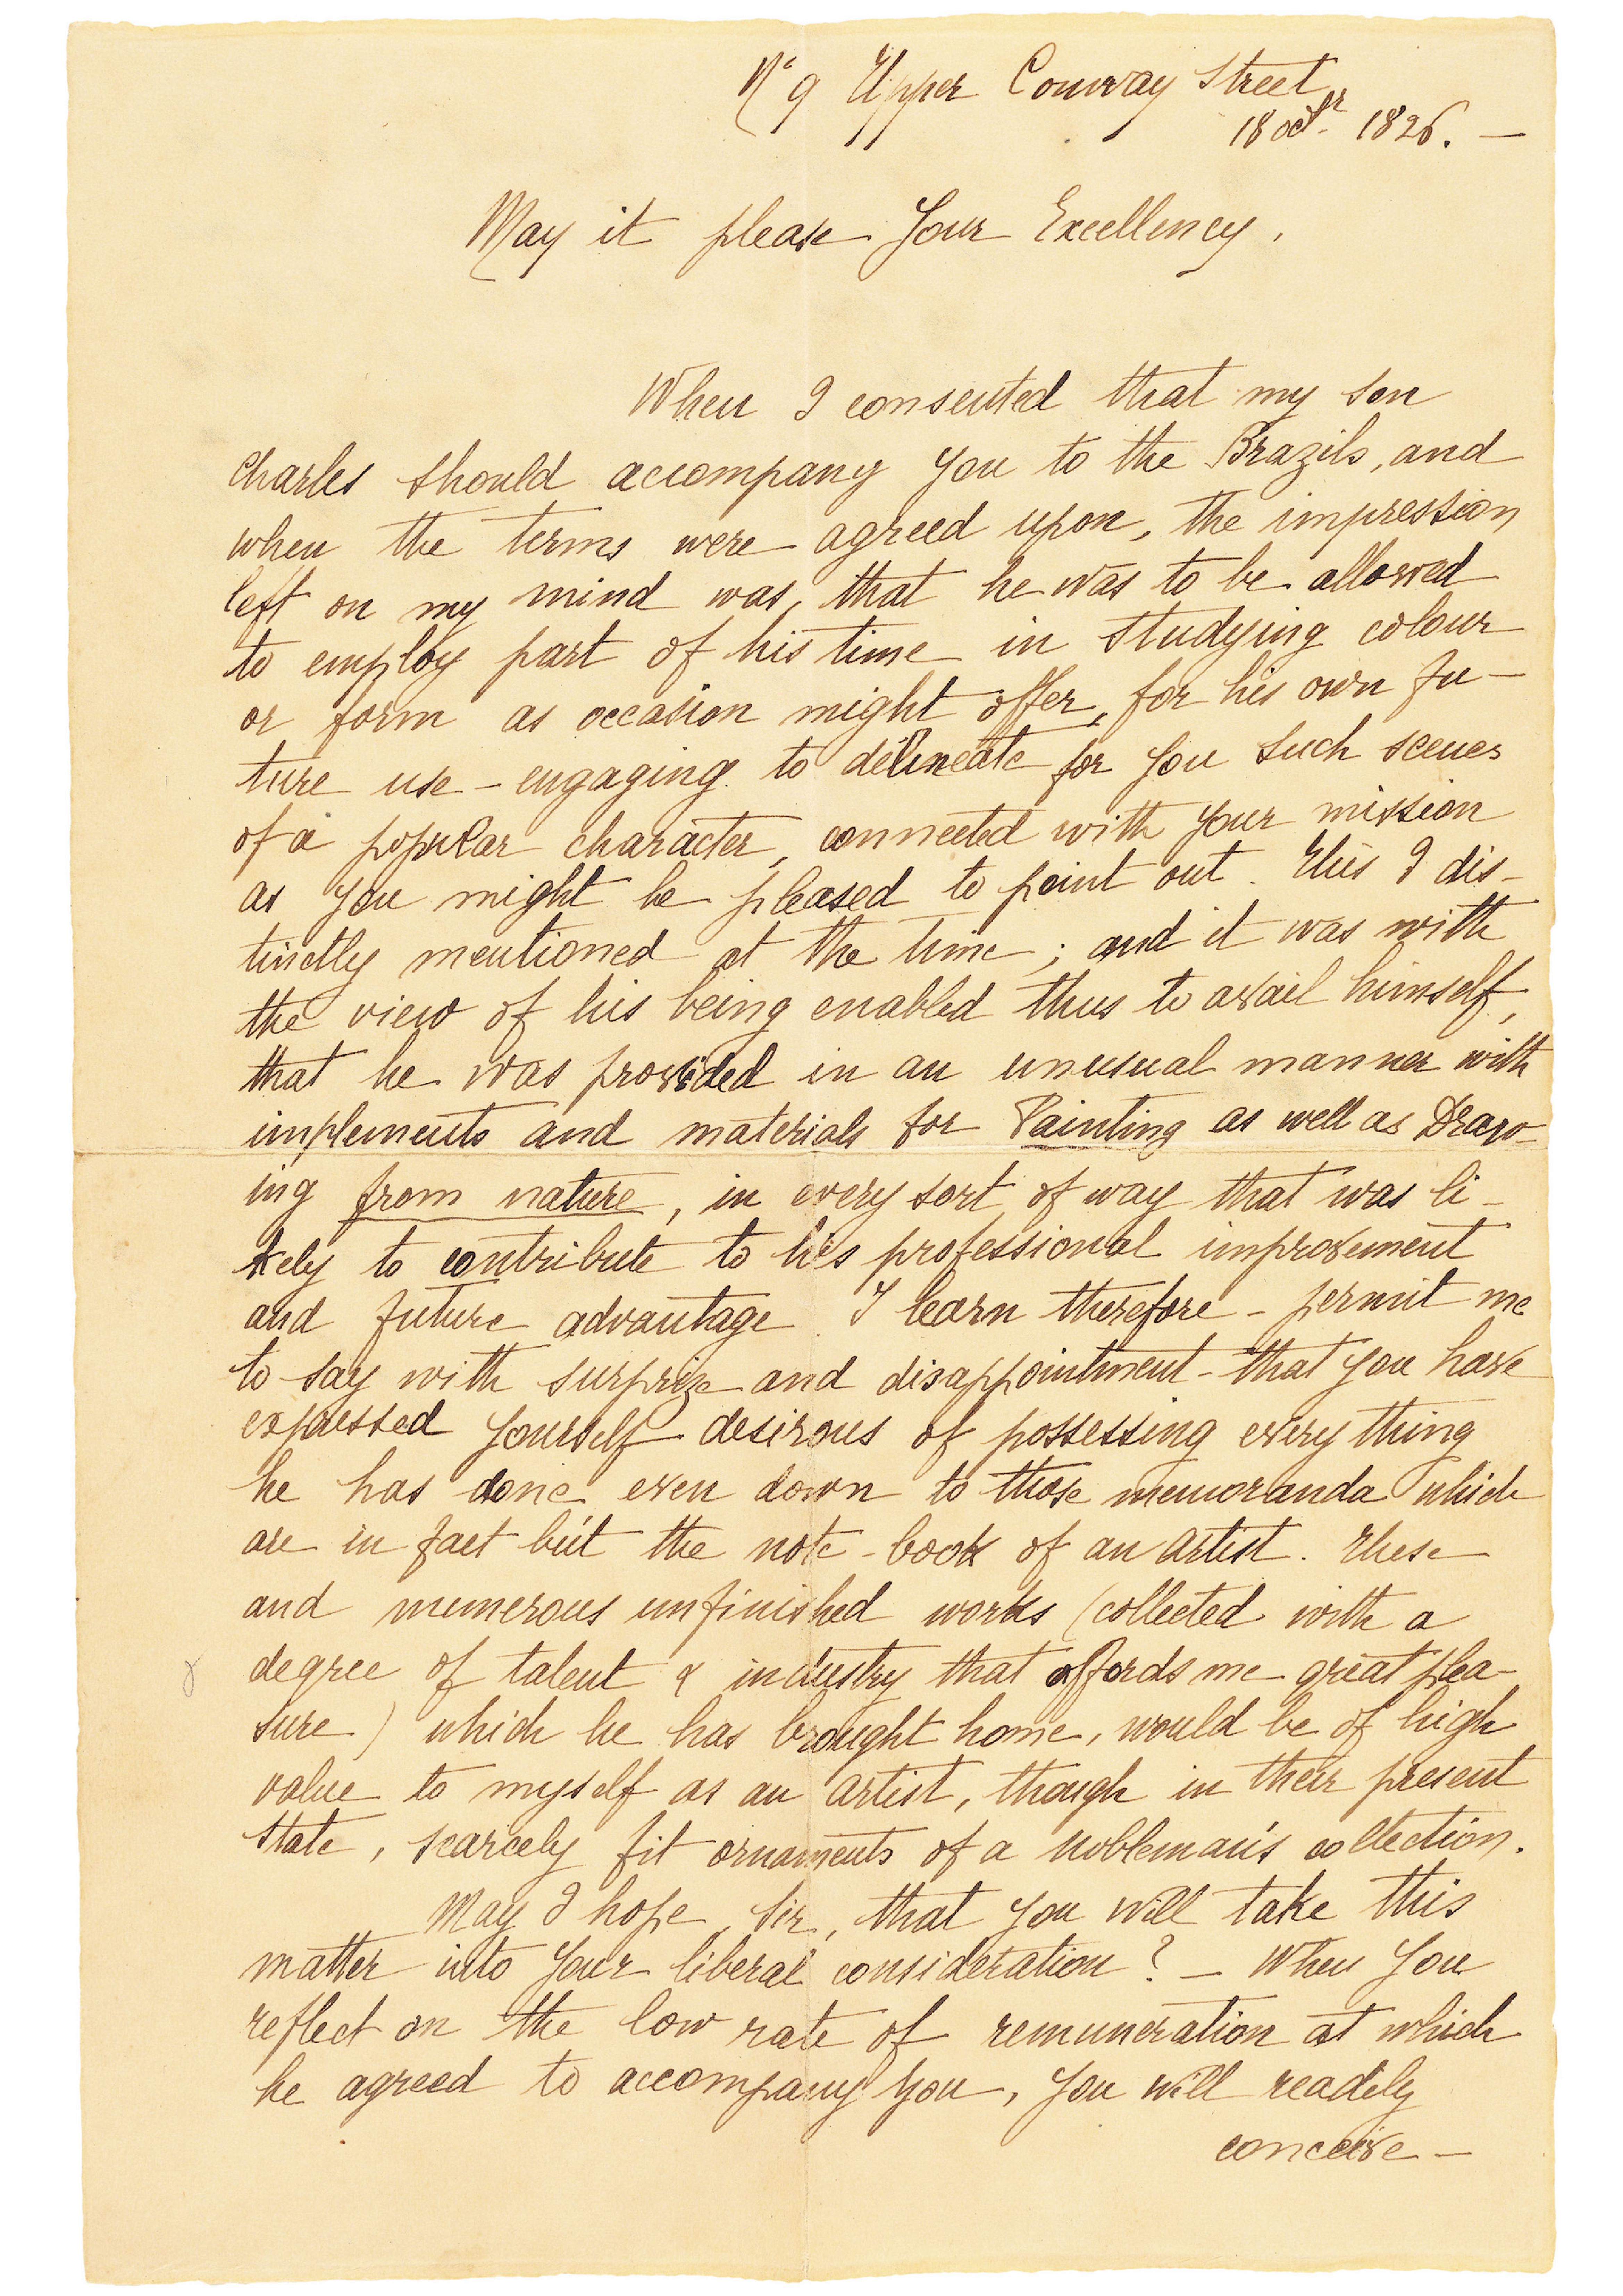 No 9 Upper Conway Street
18 octr 1826. —
May it please Your Excellency,
When I consented that my son
Charles should accompany you to the Brazils, and
when the terms were agreed upon, the impression
left on my mind was, that he was to be allowed
to employ part of his time in studying colour
or form as occasion might offer, for his own fu-
ture use - engaging to delineate for you such scenes
of a popular character, connected with your mission
as you might be pleased to point out. This I dis-
tinctly mentioned at the time; and it was with
the view of his being enabled thus to avail himself,
that he was provided in an unusual manner with
implements and materials for Painting as well as Draw-
ing from nature, in every sort of way that was li-
kely to contribute to his professional improvement
and future advantage. I learn therefore - permit me
to say with surprize and disappointment - that you have
expressed yourself desirous of possessing every thing
he has done even down to those memoranda which
are in fact but the note-book of an artist. These
and numerous unfinished works (collected with a
degree of talent & industry that affords me great plea-
sure) which he has brought home, would be of high
value to myself as an artist, though in their present
state, scarcely fit ornaments of a nobleman's collection.
May I hope, Sir, that you will take this
matter into your liberal consideration? — When you
reflect on the low rate of remuneration at which
he agreed to accompany you, you will readily
conceive —